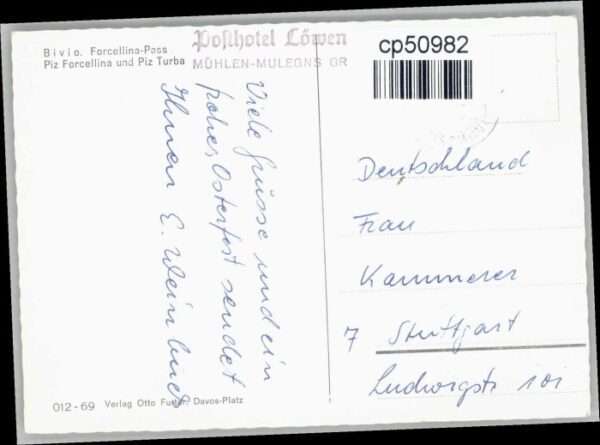 Bivio. Forcellina-Pass
Piz Forcellina und Piz Turba
Posthotel Löwen
MÜHLEN-MULEGNS GR
cp50982
Viele Grüsse und ein
frohes Osterfest sendet
Ihnen E. Weinbuch
Deutschland
Frau
Kammerer
7 Stuttgart
Ludwigstr 101
012-69 Verlag Otto Furter, Davos-Platz